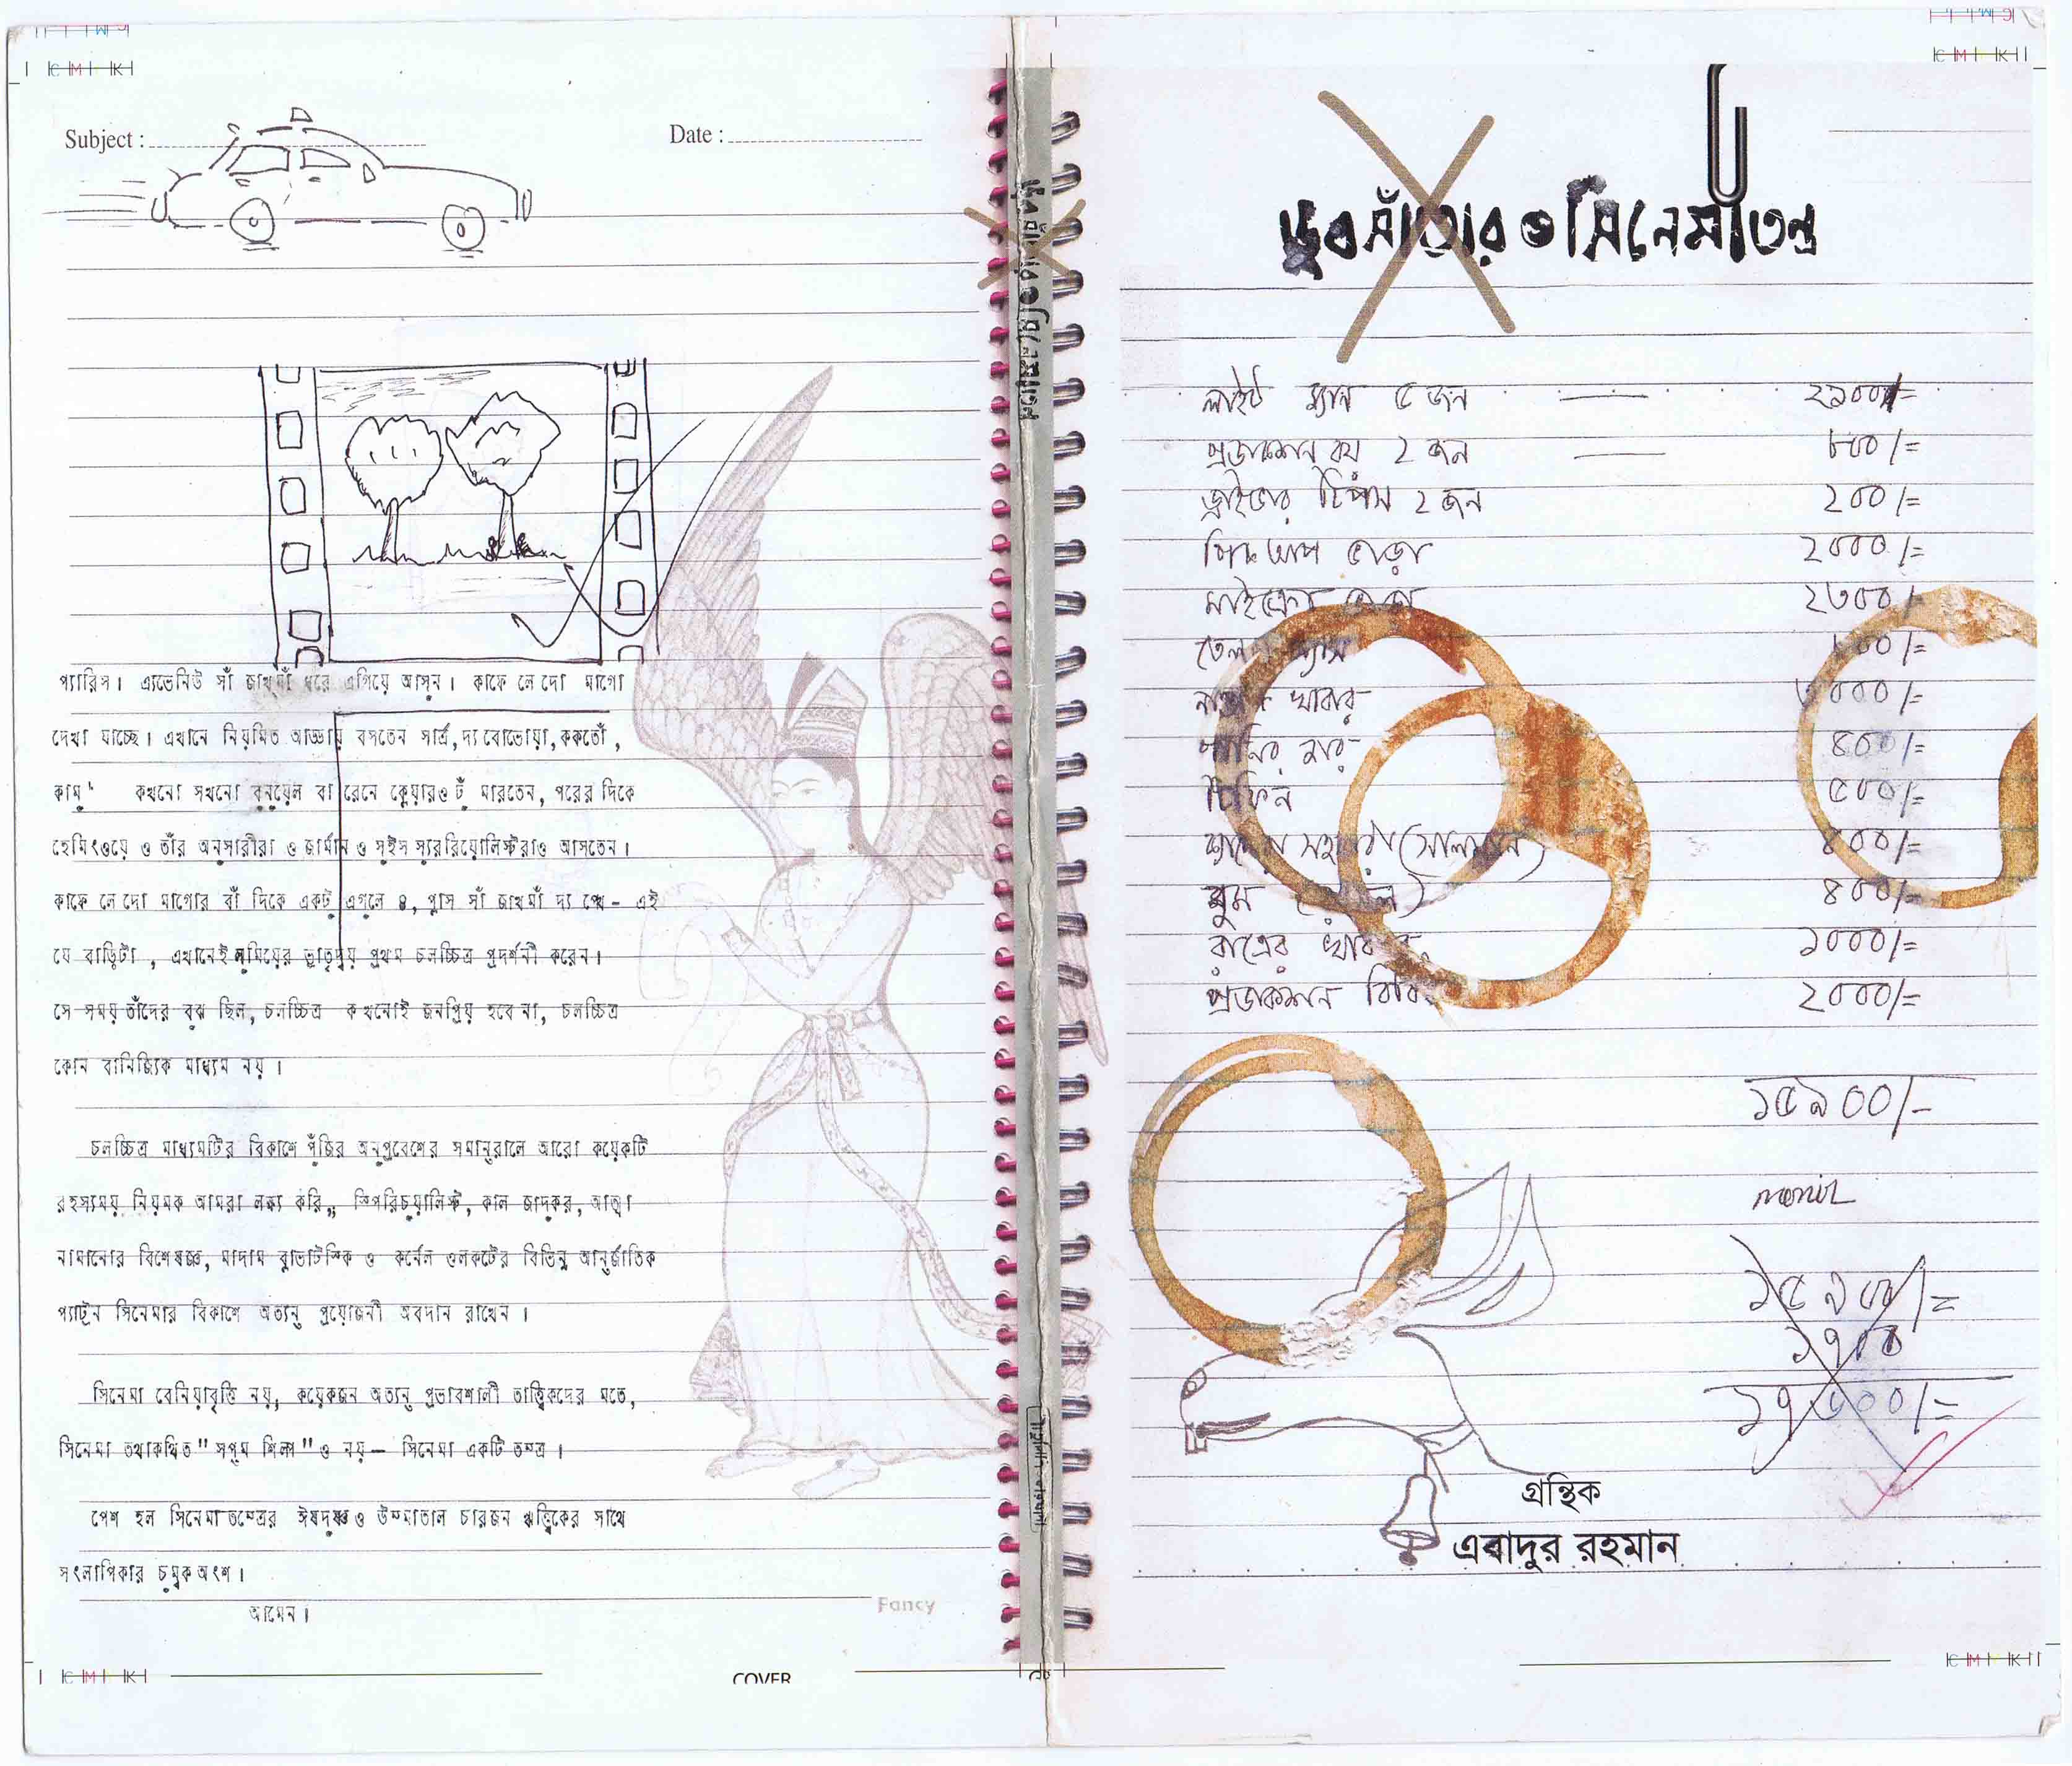 Subject :
Date :
প্যারিস। এ্যভেনিউ সাঁ জাখমাঁ ধরে এগিয়ে আসুন। কাফে লে দো মাগো
দেখা যাচ্ছে। এখানে নিয়মিত আড্ডায় বসতেন সার্ত্র, দ্য বোভোয়া, ককতোঁ,
কামু কখনো সখনো বুনুয়েল বা রেনে ক্লেয়ারও ঢুঁ মারতেন, পরের দিকে
হেমিংওয়ে ও তাঁর অনুসারীরা ও জার্মান ও সুইস স্যুররিয়োলিস্টরাও আসতেন।
কাফে লে দো মাগোর বাঁ দিকে একটু এগুলে ৪, প্লাস সাঁ জাখমাঁ দ্য প্খে - এই
যে বাড়িটা, এখানেই লুমিয়ের ভ্রাতৃদ্বয় প্রথম চলচ্চিত্র প্রদর্শনী করেন।
সে সময় তাঁদের বুঝ ছিল, চলচ্চিত্র কখনোই জনপ্রিয় হবে না, চলচ্চিত্র
কোন বানিজ্যিক মাধ্যম নয়।
চলচ্চিত্র মাধ্যমটির বিকাশে পুঁজির অনুপ্রবেশের সমান্তরালে আরো কয়েকটি
রহস্যময় নিয়মক আমরা লক্ষ্য করি,, স্পিরিচুয়ালিস্ট, কাল জাদুকর, আত্মা
নামানোর বিশেষজ্ঞ, মাদাম ব্লাভাটস্কি ও কর্নেল ওলকটের বিভিন্ন আন্তর্জাতিক
প্যাট্রন সিনেমার বিকাশে অত্যন্ত প্রয়োজনী অবদান রাখেন।
সিনেমা বেনিয়াবৃত্তি নয়, কয়েকজন অত্যন্ত প্রভাবশালী তাত্ত্বিকদের মতে,
সিনেমা তথাকথিত "সপ্তম শিল্প"ও নয় - সিনেমা একটি তন্ত্র।
পেশ হল সিনেমাতন্ত্রের ঈষদুষ্ণ ও উন্মাতাল চারজন ঋত্বিকের সাথে
সংলাপিকার চুম্বক অংশ।
আমেন।
Fancy
COVER
ডুবসাঁতার ও সিনেমাতন্ত্র
ডুবসাঁতার ও সিনেমাতন্ত্র
লাইট ম্যান ৫ জন —
প্রডাকশন বয় ২ জন — ৮০০/=
ড্রাইভার টিপস ২ জন ২০০/=
পিক আপ ভাড়া ২০০০/=
মাইক্রো ভাড়া ২৩০০/=
তেল গ্যাস
খাবার ৩০০০/=
৪০০/=
টিফিন ৫০০/=
৪০০/=
ঘুম ৪০০/=
রাত্রের খাবার ১০০০/=
প্রডাকশন ২০০০/=
১৫৯০০/-
monir
১৫৯০০/=
১৭০০
১৭৬০০/=
গ্রন্থিক
এবাদুর রহমান